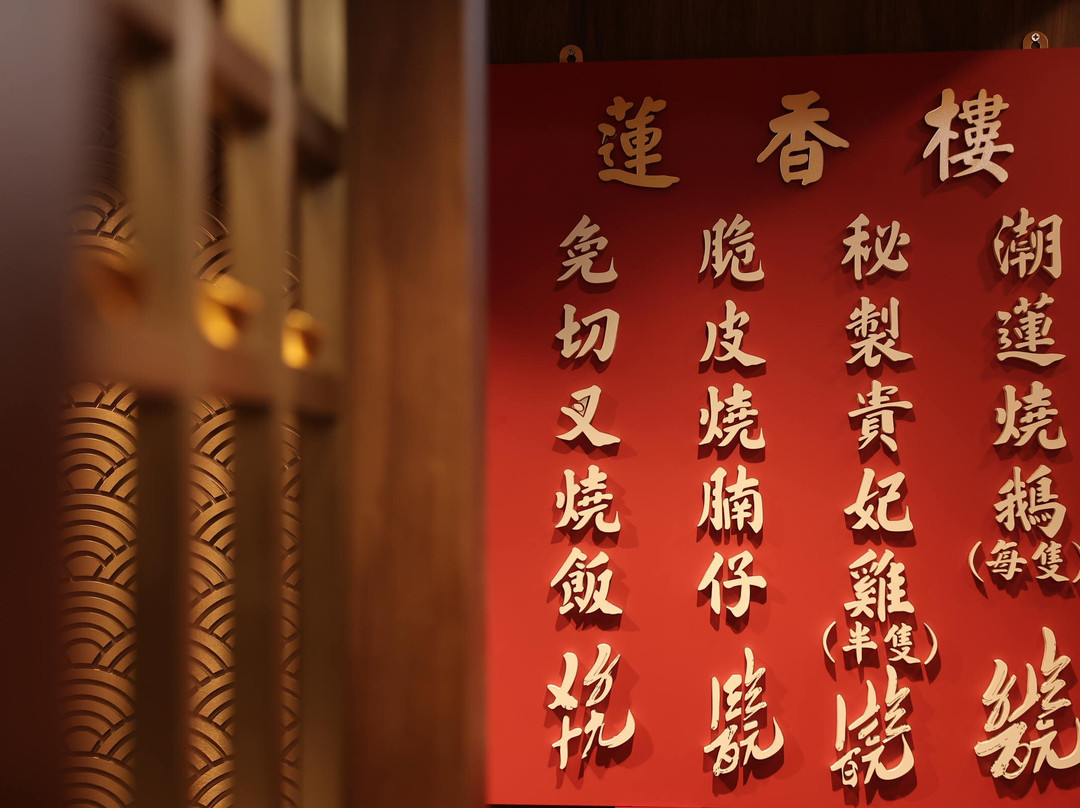 蓮香樓
潮蓮燒鵝(每隻)
秘製貴妃雞(半隻)
脆皮燒腩仔
免切叉燒飯